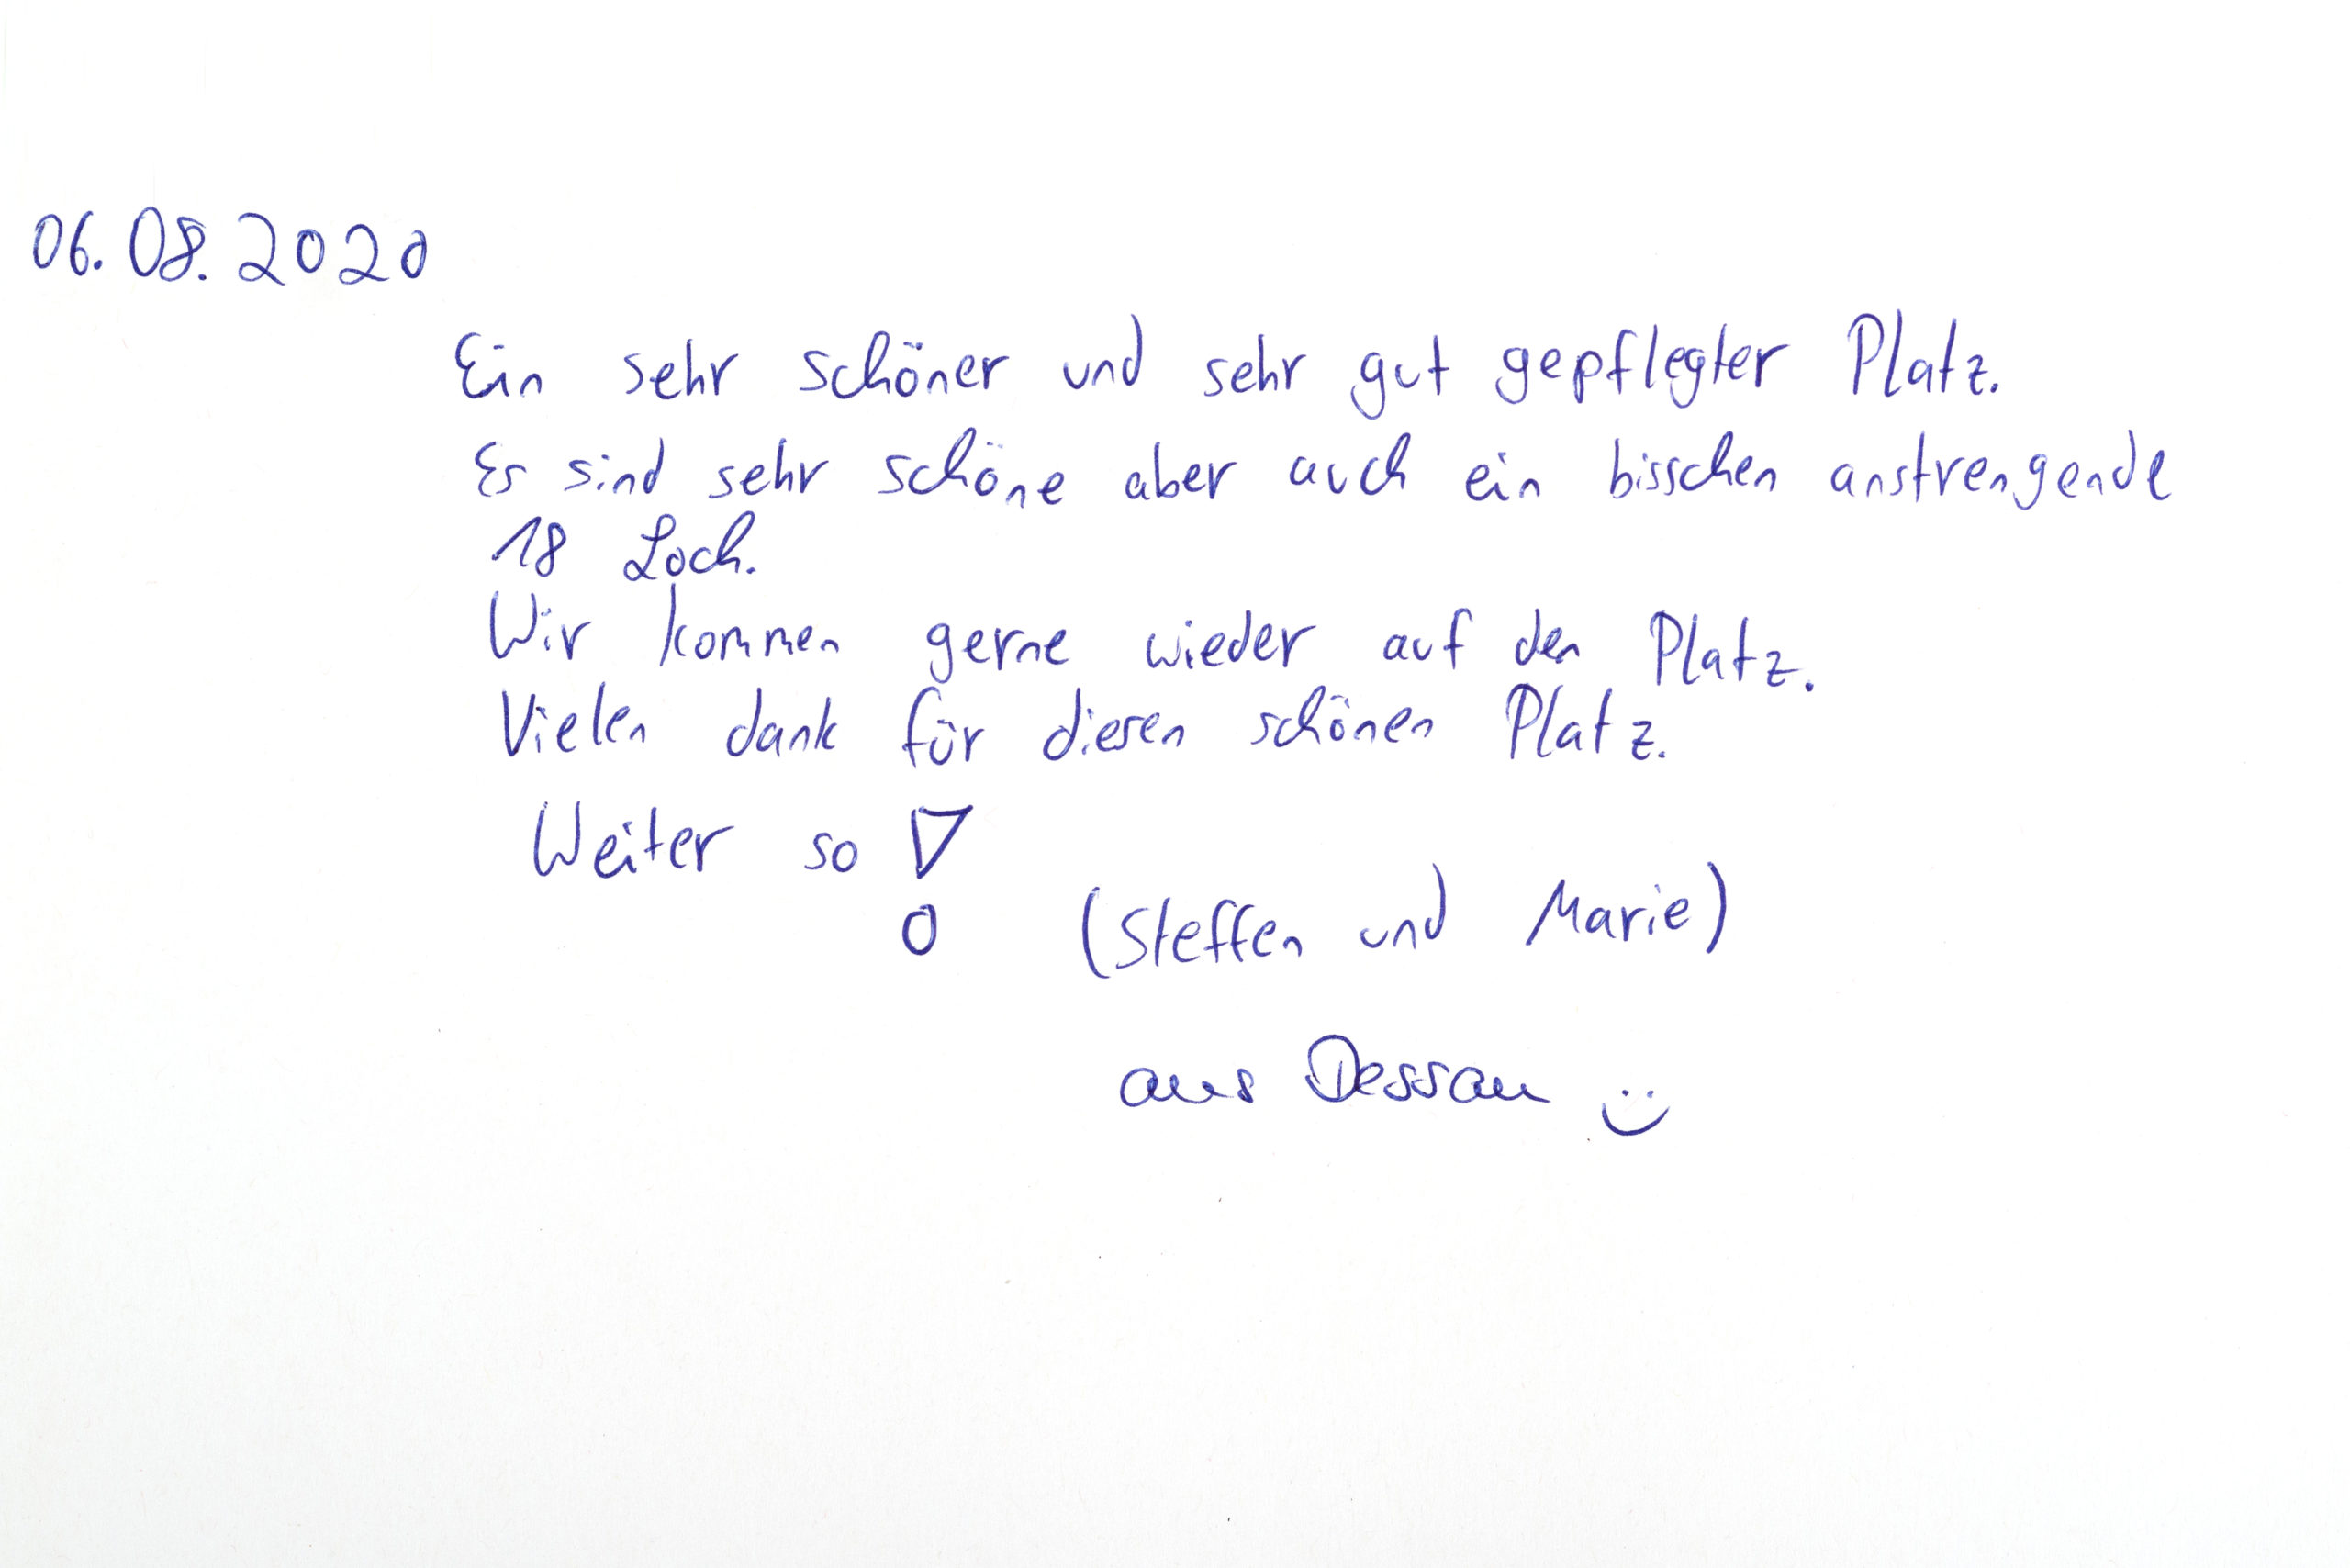 06.08.2020
Ein sehr schöner und sehr gut gepflegter Platz.
Es sind sehr schöne aber auch ein bisschen anstrengende
18 Loch.
Wir kommen gerne wieder auf den Platz.
Vielen dank für diesen schönen Platz.
Weiter so!
(Steffen und Marie)
aus Dessau :)